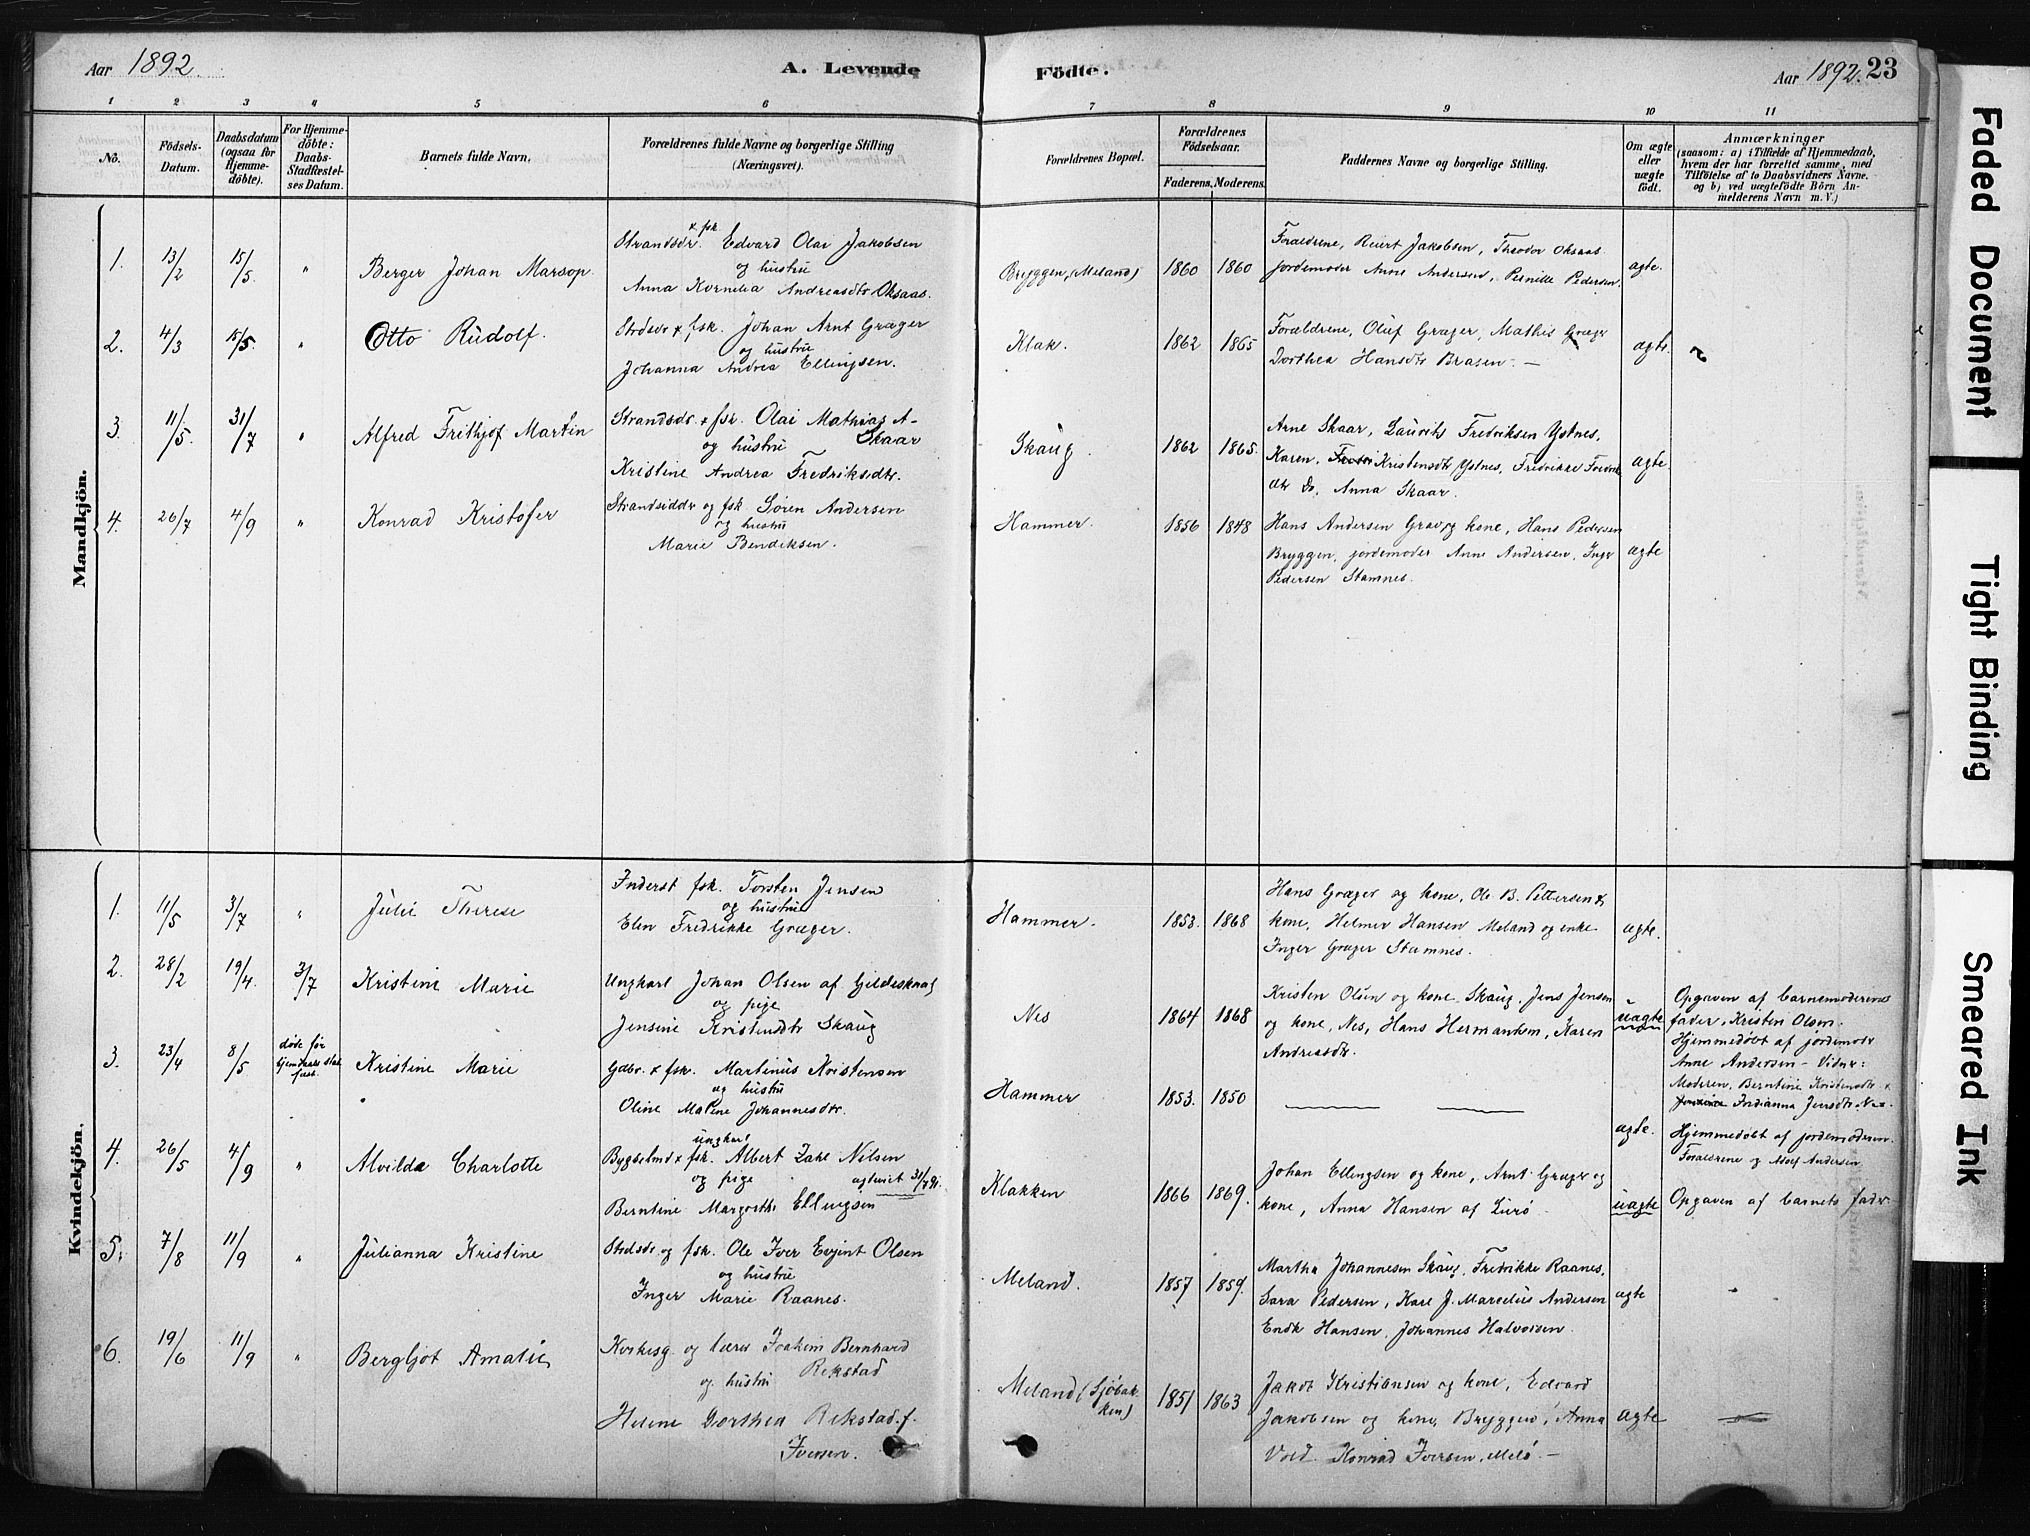 Aar 1892.
A. Levende
Födte.
Aar 1892. 23
1 2 3 4 5 6 7 8 9 10 11
No.
Födsels-
Datum.
Daabsdatum
(ogsaa for
Hjemme-
döbte).
For Hjemme-
döbte:
Daabs-
Stadfæstel-
ses Datum.
Barnets fulde Navn.
Forældrenes fulde Navne og borgerlige Stilling
(Næringsvei).
Forældrenes Bopæl.
Forældrenes
Födselsaar.
Faderens. Moderens.
Faddernes Navne og borgerlige Stilling.
Om ægte
eller
uægte
födt.
Anmærkninger
(saasom: a) i Tilfælde af Hjemmedaab,
hvem der har forrettet samme, med
Tilföielse af to Daabsvidners Navne.
og b) ved uægtefödte Börn An-
melderens Navn m.V.)
Mandkjön.
1. 13/2 15/5 " Berger Johan Marsop.
Strandsdr. x fsk Edvard Olai Jakobsen
og hustru
Anna Kornelia Andreasdtr Oksaas.
Bryggen, (Meland) 1860 1860
Forældrene, Reiert Jakobsen, Theodor Oksaas
jordemoder Anne Andersen, Pernille Pedersen.
ægte.
2. 4/3 15/5. " Otto Rudolf.
Strdsdr x fsk. Johan Arnt Græger
og hustru
Johanna Andrea Ellingsen.
Klak. 1862 1865
Forældrene, Oluf Græger, Mathis Græger
Dorthea Hansdtr Brasen. —
ægte.
3. 11/5. 31/7 " Alfred Frithjof Martin
Strandsdr x fsk. Olai Mathias A-
og hustru Skaar
Kristine Andrea Fredriksdtr.
Skaug. 1862 1865.
Arne Skaar, Laurits Fredriksen Ystnes,
Karen, Kristensdtr Ystnes, Fredrikke Fredrik
dtr Do, Anna Skaar.
ægte.
4. 26/7 4/9 " Konrad Kristofer
Strandsiddr og fsk Søren Andersen
og hustru
Marie Bendiksen.
Hammer. 1856 1848
Hans Andersen Grav og kone, Hans Pedersen
Bryggen, jordemoder Anne Andersen, Inger
Pedersen Stamnes.
ægte
Kvindekjön.
1. 11/5 3/7 " Julie Therese
Inderst fsk. Torsten Jensen
og hustru
Elen Fredrikke Græger.
Hammer. 1853. 1868
Hans Græger og kone, Ole B. Pettersen &
kone, Helmer Hansen Meland og enke
Inger Græger Stamnes.
ægte.
2. 28/2 19/4. 3/7 Kristine Marie
Ungkarl Johan Olsen af Gildeskaal
og pige
Jensine Kristensdtr Skaug
Nes 1864 1868
Kristen Olsen og kone, Skaug, Jens Jensen
og kone, Nes, Hans Hermansen, Karen
Andreasdtr.
uægte
Opgaven af barnemoderens
fader, Kristen Olsen.
Hjemmedøbt af jordemodr
Anne Andersen – Vidner:
Moderen, Berntine Kristensdtr x
Indianna Jensdtr. Nes.
3. 23/4 8/5 døde før hjemdaabs stad fæst. Kristine Marie
Gdbr. x fsk. Martinus Kristensen
og hustru
Oline Malene Johannesdtr.
Hammer 1853. 1850
ægte.
Hjemmedøbt af jordemoderen.
Forældrene og Adolf Andersen
4. 26/5 4/9 " Alvilda Charlotte
ungkarl
Bygselmd x fsk. Albert Zakl Nilsen
og pige
Berntine Margrethe Ellingsen
Klakken 1866 1869.
Johan Ellingsen og kone, Arnt Græger og
kone, Anna Hansen af Lurø
uægte
Opgaven af barnets fader
5. 7/8 11/9 " Julianna Kristine
Strdsdr og fsk. Ole Iver Evjent Olsen
og hustru
Inger Marie Raanes.
Meland. 1857 1859.
Martha Johannesen Skaug, Fredrikke Raanes,
Sara Pedersen, Karl J. Marcelius Andersen
Endk Hansen, Johannes Halvorsen.
ægte
6. 19/6 11/9 " Bergljot Amalie
Kirkesg. og lærer Joakim Bernhard
og hustru Rekstad
Helene Dorthea Rekstad. f.
Iversen.
Meland (Sjöbak-
ken) 1851 1863
Jakob Kristiansen og kone, Edvard
Jakobsen og kone, Bryggen, Anna
Vold. Konrad Iversen, Melö. —
ægte
Faded Document
Tight Binding
Smeared Ink